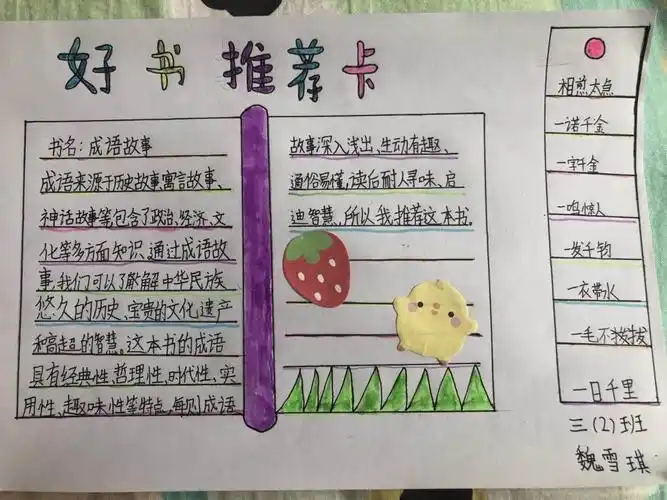 好书推荐卡
书名:成语故事
成语来源于历史故事、寓言故事、
神话故事等包含了政治、经济、文
化等多方面知识,通过成语故
事,我们可以了解中华民族
悠久的历史、宝贵的文化遗产
和高超的智慧。这本书的成语
具有经典性、哲理性、时代性、实
用性、趣味性等特点,每则成语
故事深入浅出、生动有趣、
通俗易懂,读后耐人寻味、启
迪智慧、所以我推荐这本书.
相煎太点
一诺千金
一字千金
一鸣惊人
一发千钧
一衣带水
一毛不拨拔
一日千里
三(2)班
魏雪琪